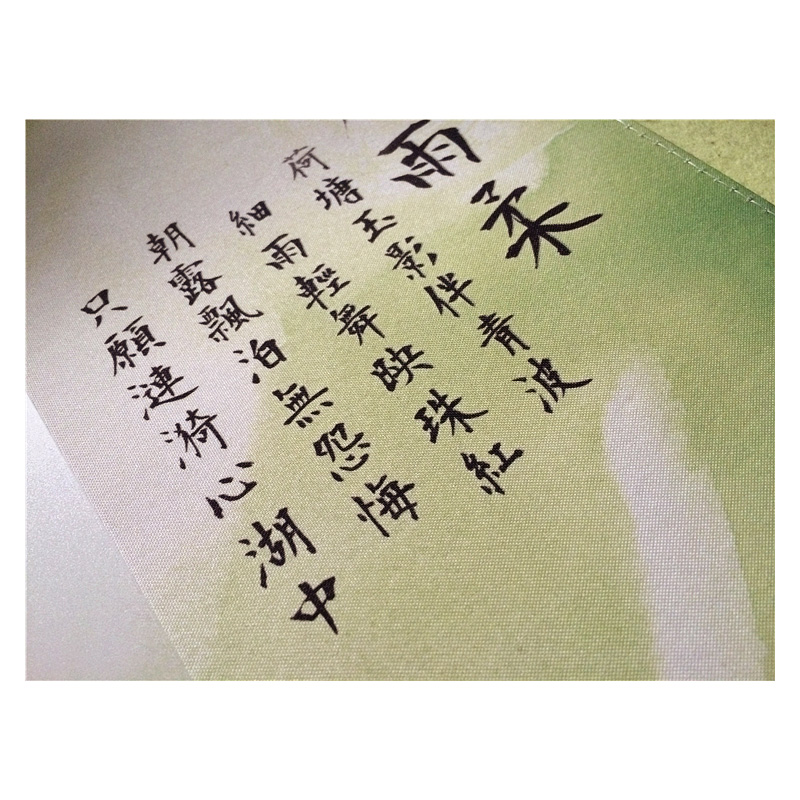 雨柔
荷塘玉影伴青波
細雨輕舞映珠紅
朝露飄泊無怨悔
只願漣漪心湖中